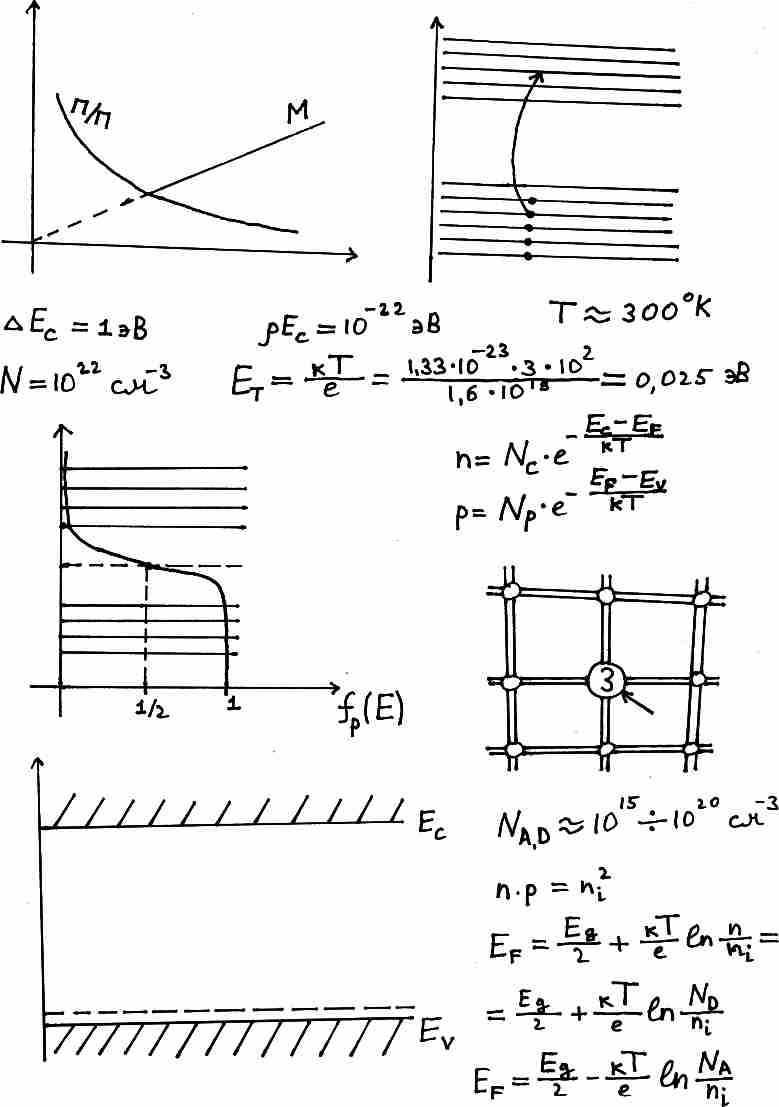 п/п M
ΔE_c = 1 эВ ρE_c = 10^{-22} эВ T ≈ 300°K
N = 10^{22} см^{-3} E_T = кT/e = 1,33·10^{-23}·3·10^2/1,6·10^{18} = 0,025 эВ
n = N_c·e^{-(E_c-E_F)/кT}
p = N_p·e^{-(E_F-E_V)/кT}
3
1/2 1 f_p(E)
E_c
N_{A,D} ≈ 10^{15} ÷ 10^{20} см^{-3}
n·p = n_i^2
E_F = E_g/2 + кT/e ln n/n_i =
= E_g/2 + кT/e ln N_D/n_i
E_V
E_F = E_g/2 - кT/e ln N_A/n_i